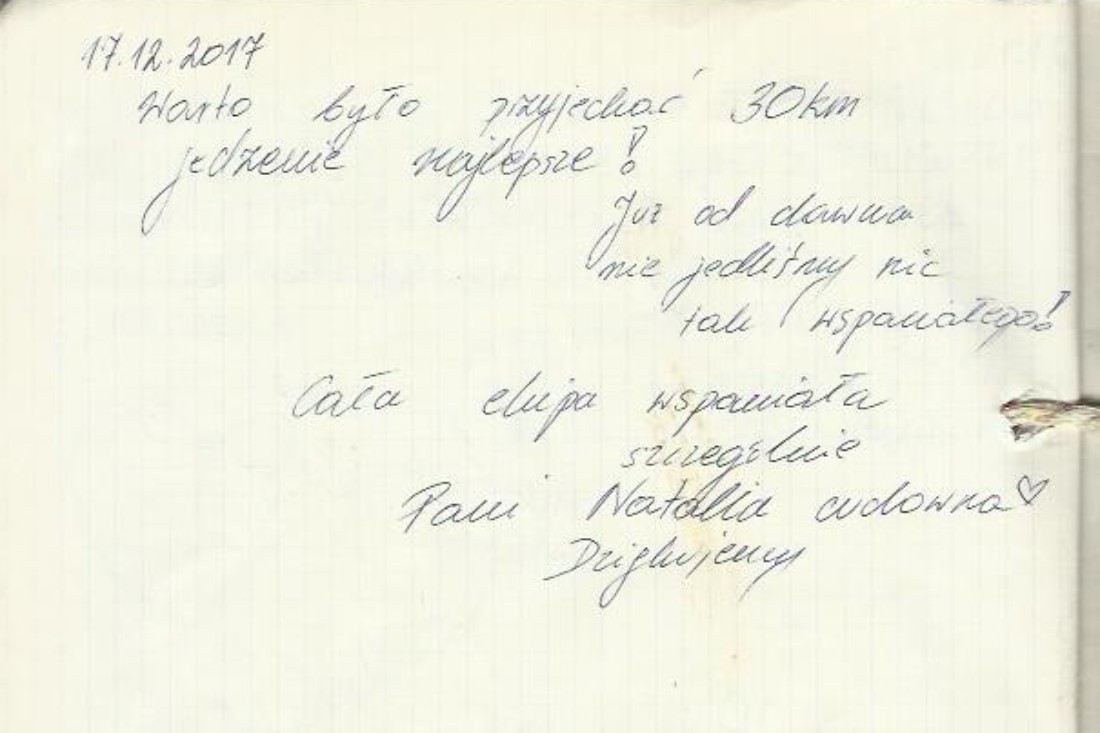 17.12.2017
Warto było przyjechać 30km
jedzenie najlepsze!
Już od dawna
nie jedliśmy nic
tak wspaniałego!
Cała ekipa wspaniała
szczególnie
Pani Natalia cudowna♡
Dziękujemy